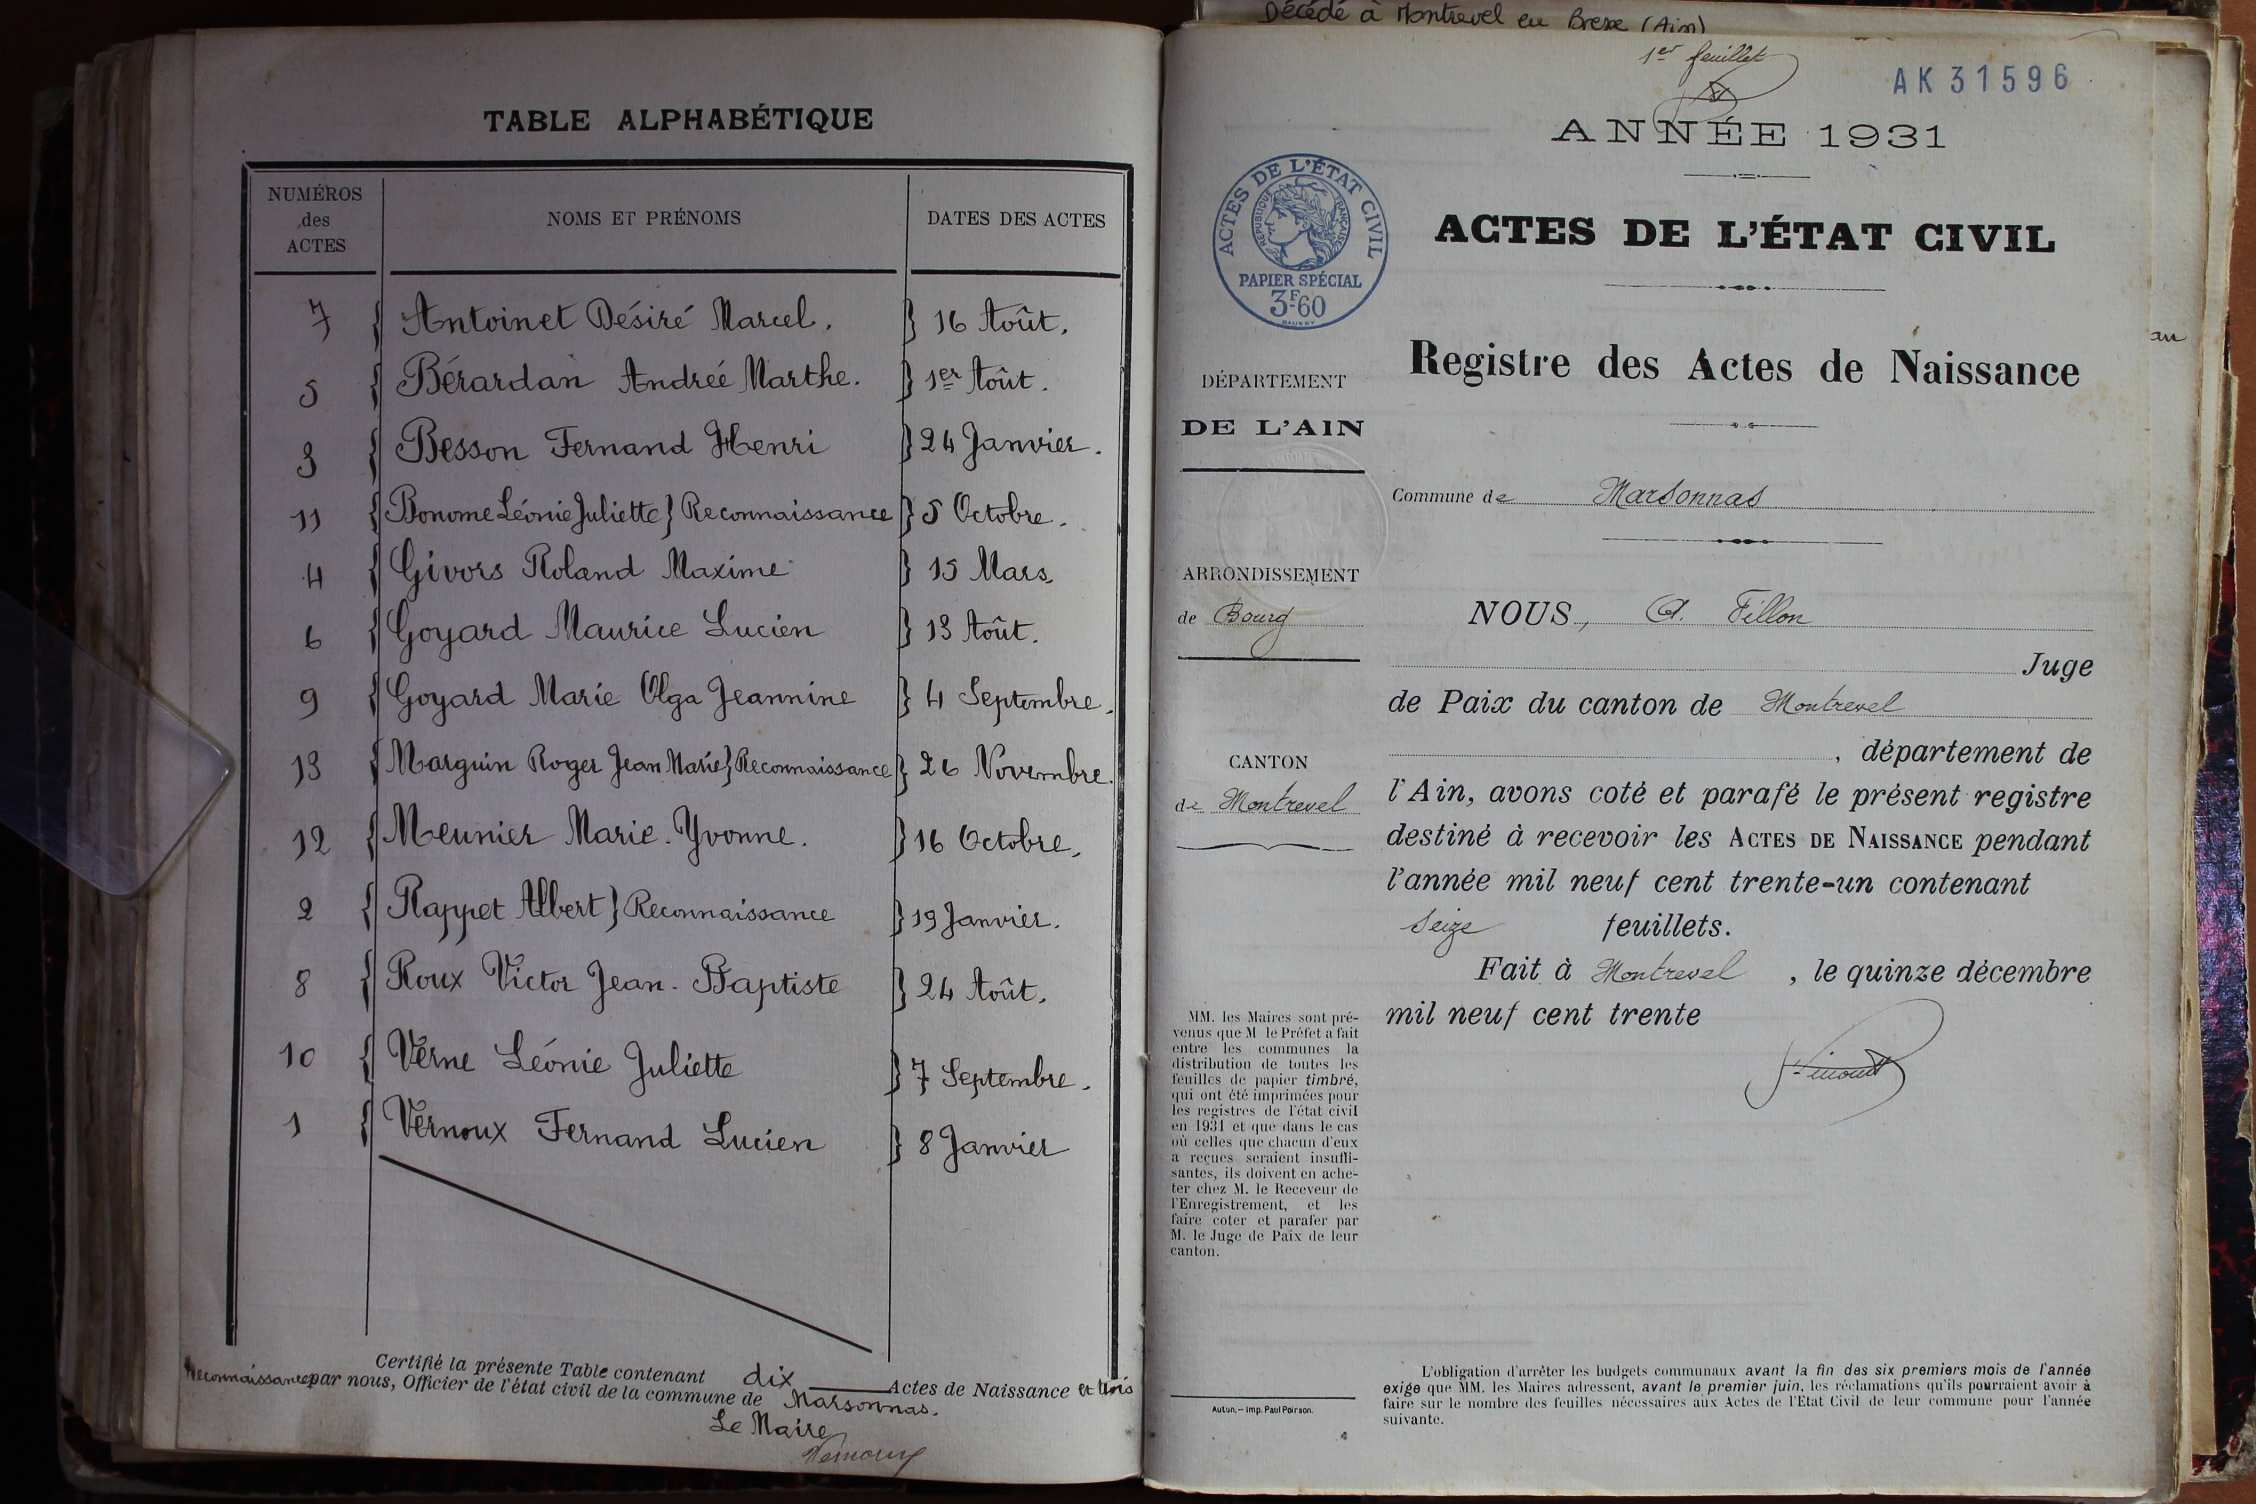 TABLE ALPHABÉTIQUE
NUMÉROS des ACTES
NOMS ET PRÉNOMS
DATES DES ACTES
7 { Antoinet Désiré Marcel. } 16 Août.
5 { Bérardan Andreé Marthe. } 1er Août.
3 { Besson Fernand Henri } 24 Janvier.
11 { Bonome Léonie Juliette } Reconnaissance } 5 Octobre.
4 { Givors Roland Maxime } 15 Mars.
6 { Goyard Maurice Lucien } 13 Août.
9 { Goyard Marie Olga Jeannine } 4 Septembre.
13 { Marguin Roger Jean Marie } Reconnaissance } 26 Novembre.
12 { Meunier Marie-Yvonne. } 16 Octobre.
2 { Rappet Albert } Reconnaissance } 19 Janvier.
8 { Roux Victor Jean-Baptiste } 24 Août.
10 { Verne Léonie Juliette } 7 Septembre.
1 { Vernoux Fernand Lucien } 8 Janvier
Certifié la présente Table contenant dix Actes de Naissance et trois
reconnaissances par nous, Officier de l'état civil de la commune de Marsonnas.
Le Maire
Décédé à Montrevel en Bresse (Ain)
1er feuillet
AK 31596
ANNÉE 1931
ACTES DE L'ÉTAT CIVIL
RÉPUBLIQUE FRANÇAISE
PAPIER SPÉCIAL
3F60
ACTES DE L'ÉTAT CIVIL
Registre des Actes de Naissance
au
DÉPARTEMENT
DE L'AIN
Commune de Marsonnas
ARRONDISSEMENT
de Bourg
NOUS, A. Fillon
Juge
de Paix du canton de Montrevel
, département de
CANTON
de Montrevel
l'Ain, avons coté et parafé le présent registre
destiné à recevoir les ACTES DE NAISSANCE pendant
l'année mil neuf cent trente-un contenant
seize feuillets.
Fait à Montrevel , le quinze décembre
mil neuf cent trente
MM. les Maires sont pré-
venus que M le Préfet a fait
entre les communes la
distribution de toutes les
feuilles de papier timbré,
qui ont été imprimées pour
les registres de l'état civil
en 1931 et que dans le cas
où celles que chacun d'eux
a reçues seraient insuffi-
santes, ils doivent en ache-
ter chez M. le Receveur de
l'Enregistrement, et les
faire coter et parafer par
M. le Juge de Paix de leur
canton.
Autun.— Imp. Paul Poirson.
L'obligation d'arrêter les budgets communaux avant la fin des six premiers mois de l'année
exige que MM. les Maires adressent, avant le premier juin, les réclamations qu'ils pourraient avoir à
faire sur le nombre des feuilles nécessaires aux Actes de l'Etat Civil de leur commune pour l'année
suivante.